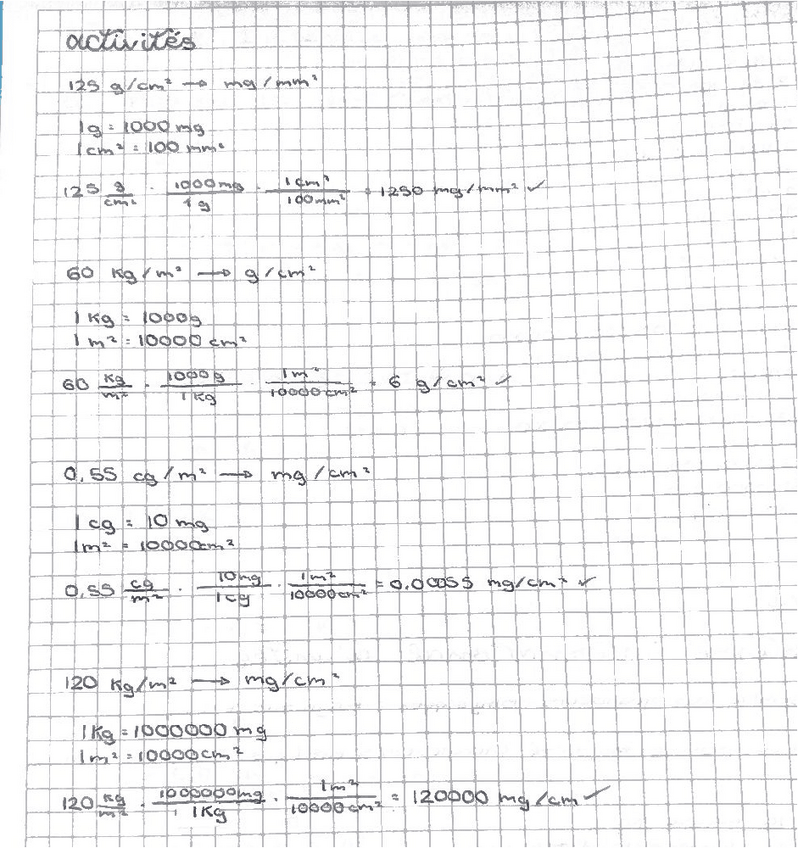 activités
125 g/cm² → mg/mm²
1g = 1000 mg
1cm² = 100 mm²
125 g/cm² · 1000mg/1g · 1cm²/100mm² = 1250 mg/mm² ✓
60 Kg/m² → g/cm²
1 Kg = 1000g
1 m² = 10000 cm²
60 Kg/m² · 1000g/1Kg · 1m²/10000cm² = 6 g/cm² ✓
0,55 cg/m² → mg/cm²
1 cg = 10 mg
1m² = 10000cm²
0,55 cg/m² · 10mg/1cg · 1m²/10000cm² = 0.00055 mg/cm² ✓
120 Kg/m² → mg/cm²
1Kg = 1000000 mg
1m² = 10000cm²
120 kg/m² · 1000000mg/1Kg · 1m²/10000cm² = 120000 mg/cm ✓